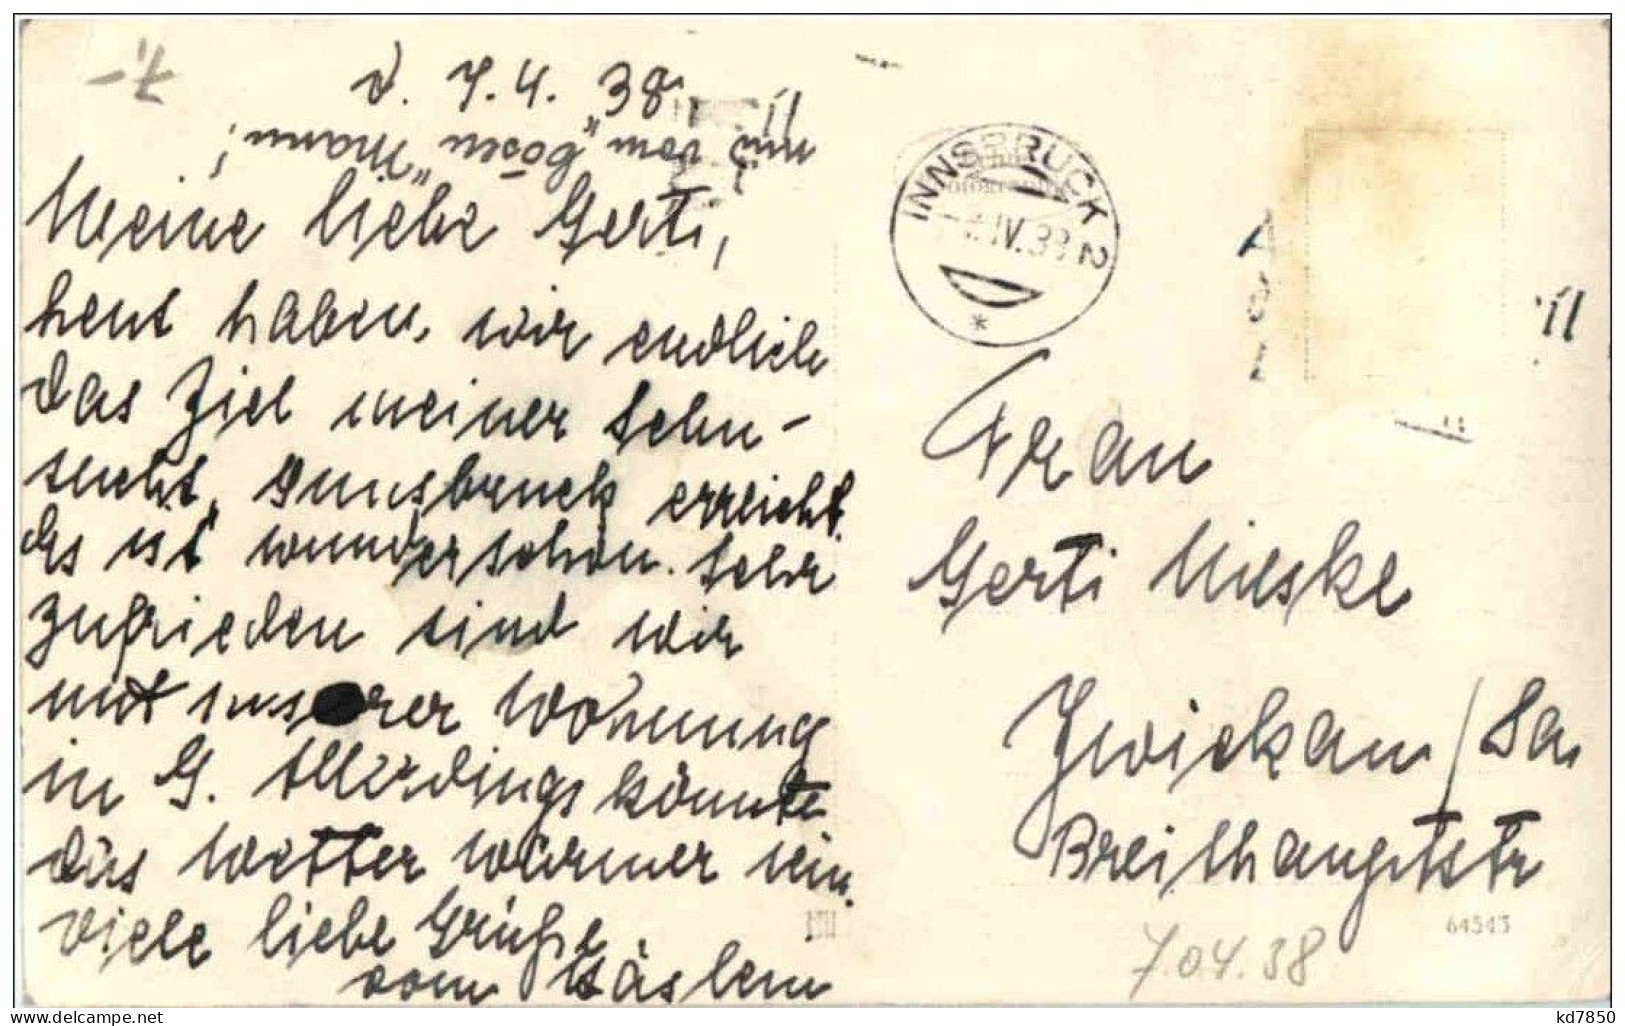 7,-
d. 7.4.38.
Meine liebe Gerti,
heut haben wir endlich
das Ziel meiner Sehn-
sucht, Innsbruck erreicht.
Es ist wunderschön. Sehr
zufrieden sind wir
mit unserer Wohnung
in G. Allerdings könnte
das Wetter wärmer sein.
Viele liebe Grüße
vom Häslein
und vom "bösen" Mann!
INNSBRUCK 2
IV.38
*
Frau
Gerti Mieske
Zwickau/Sa.
Breithauptstr
64543
7.04.38
delcampe.net
kd7850